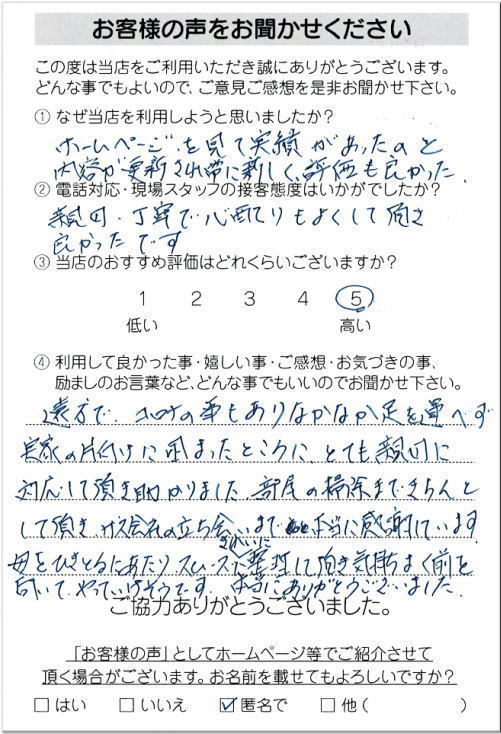 お客様の声をお聞かせください
この度は当店をご利用いただき誠にありがとうございます。
どんな事でもよいので、ご意見ご感想を是非お聞かせ下さい。
① なぜ当店を利用しようと思いましたか?
ホームページを見て実績があったのと
内容が更新され常に新しく、評価も良かった
② 電話対応・現場スタッフの接客態度はいかがでしたか?
親切・丁寧で心配りもよくして頂き
良かったです
③ 当店のおすすめ評価はどれくらいございますか?
1 2 3 4 5
低い 高い
④ 利用して良かった事・嬉しい事・ご感想・お気づきの事、
励ましのお言葉など、どんな事でもいいのでお聞かせ下さい。
遠方で、コロナの事もありなかなか足を運べず
実家の片付けに困ったところに、とても親切に
対応して頂き助かりました。部屋の掃除まできちんと
して頂き、ガス会社の立ち会いまで 本当に感謝しています
母をひきとるにあたりスムーズに
きれいに
整理して頂き気持ちよく前を
向いて、やっていけそうです。本当にありがとうございました。
ご協力ありがとうございました。
「お客様の声」としてホームページ等でご紹介させて
頂く場合がございます。お名前を載せてもよろしいですか?
□ はい □ いいえ ☑ 匿名で □ 他( )